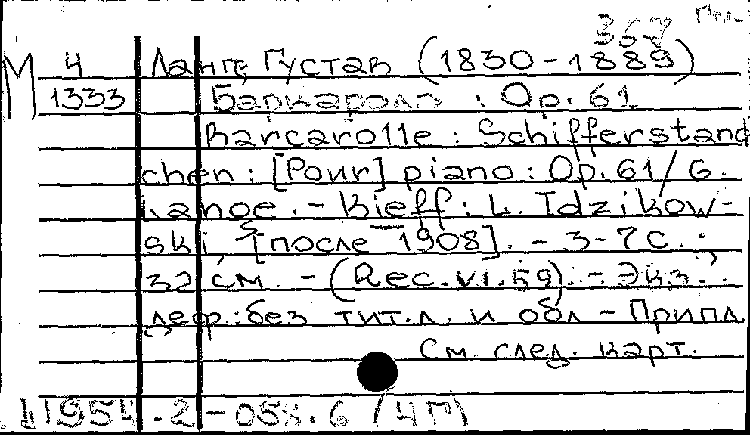 367
М 4 Ланге, Густав (1830-1889)
1333 Баркарола : Op. 61
Barcarolle : Schifferständ
chen : [Pour] piano : Op. 61 / G.
Lange. - Kieff : L. Idzikow-
ski, [после 1908]. - 3-7 с. ;
32 см. - (Rec. VI. 59). - Экз.
деф.: без тит. л. и обл - Припл.
См. след. карт.